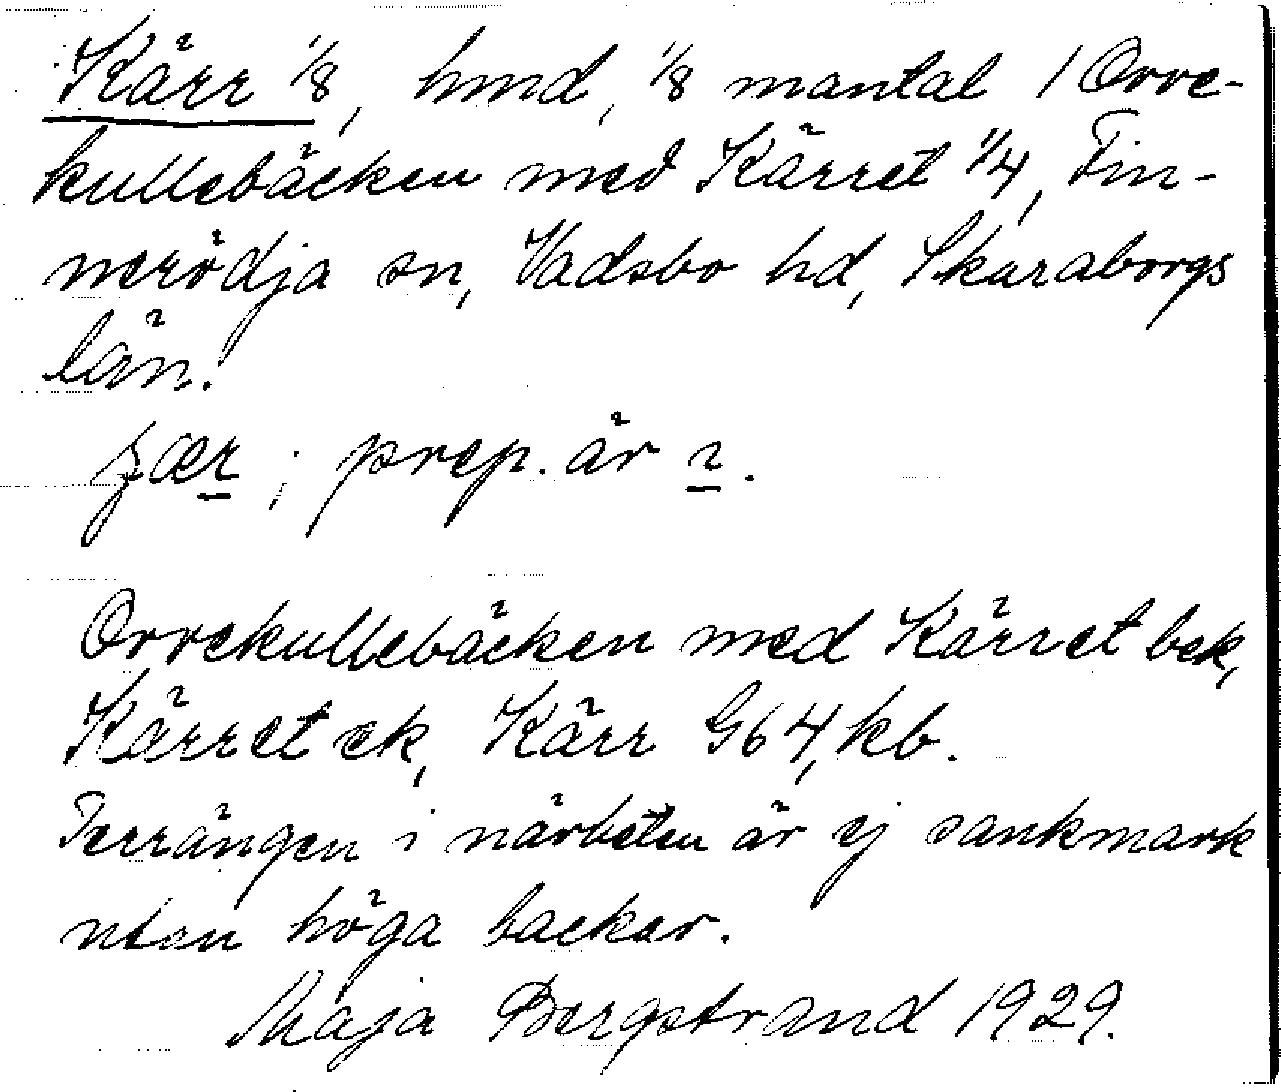 Kärr 1/8, hmd, 1/8 mantal / Orre-
kullebäcken med Kärret 1/4, Fin-
nerödja sn, Vadsbo hd, Skaraborgs
län.
; prep. är ı.
Orrekullebäcken med Kärret bek,
Kärret ek, Kärr G64, kb.
Terrängen i närheten är ej sankmark
utan höga backar.
Maja Bergstrand 1929.